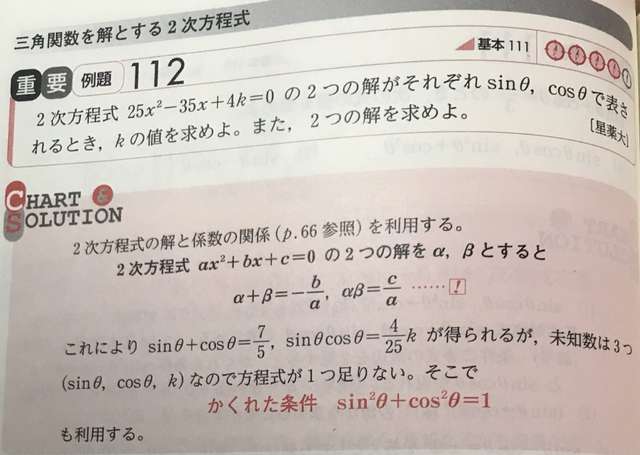 三角関数を解とする2次方程式
重要 例題 112
基本 111
①
2次方程式 25x²−35x+4k=0 の2つの解がそれぞれ sinθ, cosθ で表さ
れるとき, kの値を求めよ。また, 2つの解を求めよ。
[星薬大]
CHART &
SOLUTION
2次方程式の解と係数の関係 (p.66 参照) を利用する。
2次方程式 ax²+bx+c=0 の2つの解を α, β とすると
α+β=−b/a, αβ=c/a ……!
これにより sinθ+cosθ=7/5, sinθcosθ=4/25 k が得られるが, 未知数は3つ
(sinθ, cosθ, k) なので方程式が1つ足りない。そこで
かくれた条件 sin²θ+cos²θ=1
も利用する。